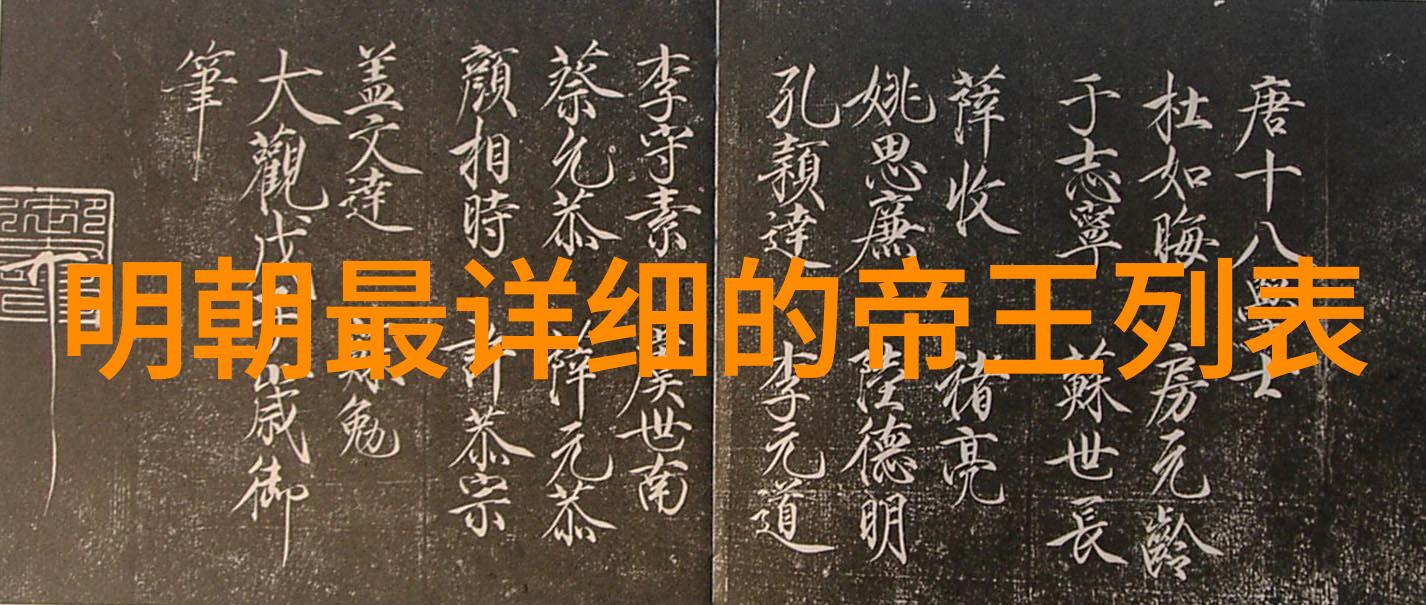 明朝最详细的帝王列表
唐十八學士
杜如晦 房元齡
于志寧 蘇世長
薛收 褚亮
姚思廉 陸德明
孔穎達 李元道
李守素 虞世南
蔡允恭 薛元恭
顔相時 許恭宗
盖文達 勉
大觀戊子歲御
筆